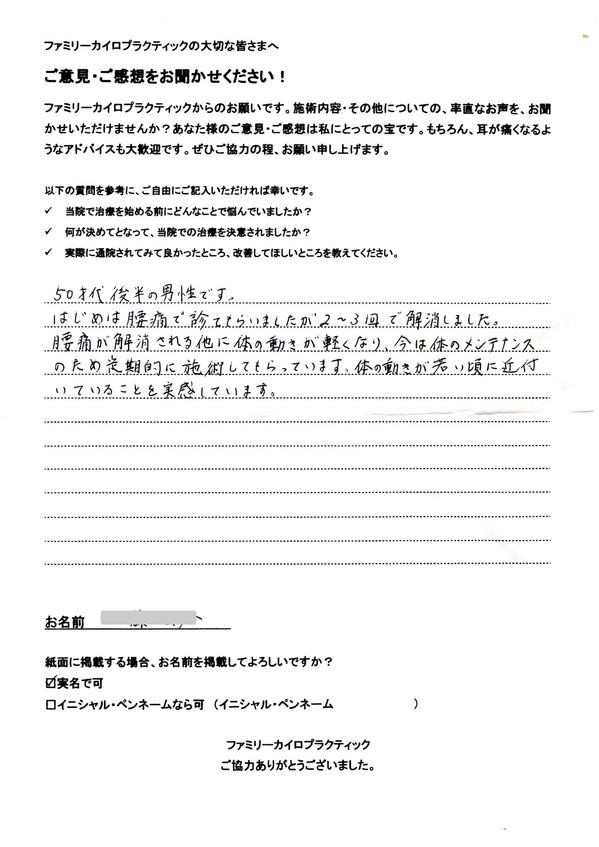 ファミリーカイロプラクティックの大切な皆さまへ
ご意見・ご感想をお聞かせください！
ファミリーカイロプラクティックからのお願いです。施術内容・その他についての、率直なお声を、お聞
かせいただけませんか？あなた様のご意見・ご感想は私にとっての宝です。もちろん、耳が痛くなるよ
うなアドバイスも大歓迎です。ぜひご協力の程、お願い申し上げます。
以下の質問を参考に、ご自由にご記入いただければ幸いです。
✓ 当院で治療を始める前にどんなことで悩んでいましたか？
✓ 何が決めてとなって、当院での治療を決意されましたか？
✓ 実際に通院されてみて良かったところ、改善してほしいところを教えてください。
50才代後半の男性です。
はじめは腰痛で診てもらいましたが2～3回で解消しました。
腰痛が解消される他に体の動きが軽くなり、今は体のメンテナンス
のため定期的に施術してもらっています。体の動きが若い頃に近付
いていることを実感しています。
お名前
紙面に掲載する場合、お名前を掲載してよろしいですか？
☑実名で可
□イニシャル・ペンネームなら可（イニシャル・ペンネーム　　　　　）
ファミリーカイロプラクティック
ご協力ありがとうございました。